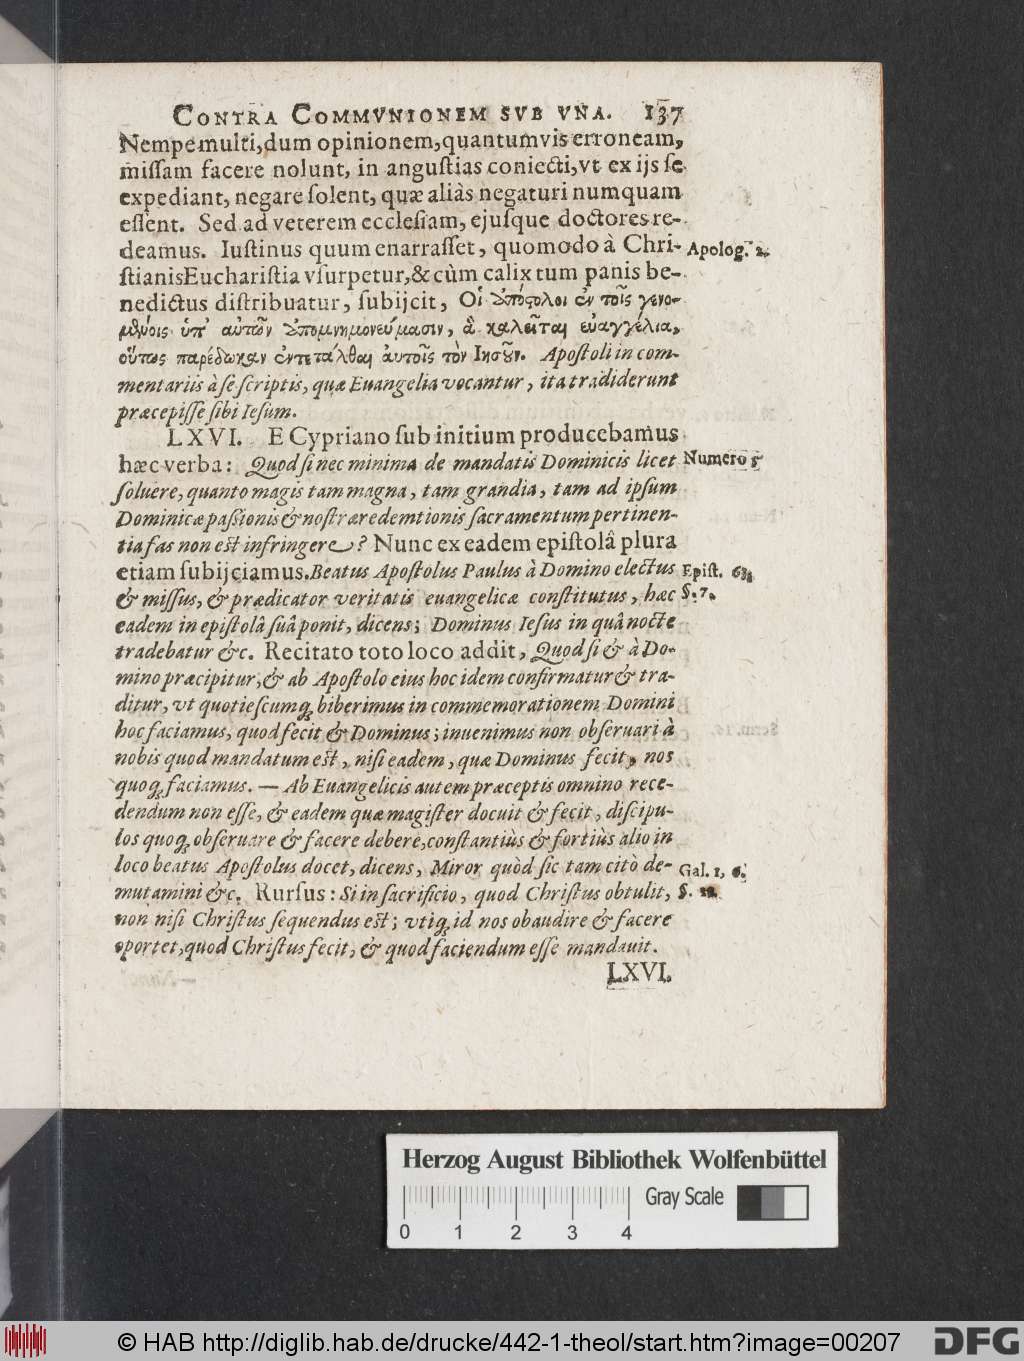 CONTRA COMMVNIONEM SVB VNA. 137
Nempe multi, dum opinionem, quantumvis erroneam,
missam facere nolunt, in angustias coniecti, vt ex ijs se
expediant, negare solent, quæ aliàs negaturi numquam
essent. Sed ad veterem ecclesiam, ejusque doctores re-
deamus. Iustinus quum enarrasset, quomodo à Chri- Apolog. 2.
stianis Eucharistia vsurpetur, & cùm calix tum panis be-
nedictus distribuatur, subijcit, Οἱ ἀπόστολοι ἐν τοῖς γενο-
μένοις ὑπ' αὐτῶν ἀπομνημονεύμασιν, ἃ καλεῖται εὐαγγέλια,
οὕτως παρέδωκαν ἐντετάλθαι αὐτοῖς τὸν Ιησοῦν. Apostoli in com-
mentariis à se scriptis, quæ Euangelia vocantur, ita tradiderunt
præcepisse sibi Iesum.
LXVI. E Cypriano sub initium producebamus
hæc verba: Quod si nec minima de mandatis Dominicis licet Numero 5
soluere, quanto magis tam magna, tam grandia, tam ad ipsum
Dominicæ passionis & nostræ redemtionis sacramentum pertinen-
tia fas non est infringere? Nunc ex eadem epistolâ plura
etiam subijciamus. Beatus Apostolus Paulus à Domino electus Epist. 63,
& missus, & prædicator veritatis euangelicæ constitutus, hæc §. 7.
eadem in epistolâ suâ ponit, dicens; Dominus Iesus in quâ nocte
tradebatur &c. Recitato toto loco addit, Quod si & à Do-
mino præcipitur, & ab Apostolo eius hoc idem confirmatur & tra-
ditur, vt quotiescumq; biberimus in commemorationem Domini
hoc faciamus, quod fecit & Dominus; inuenimus non obseruari à
nobis quod mandatum est, nisi eadem, quæ Dominus fecit, nos
quoq; faciamus. — Ab Euangelicis autem præceptis omnino rece-
dendum non esse, & eadem quæ magister docuit & fecit, discipu-
los quoq; obseruare & facere debere, constantiùs & fortiùs alio in
loco beatus Apostolus docet, dicens, Miror quòd sic tam citò de- Gal. 1, 6.
mutamini &c. Rursus: Si in sacrificio, quod Christus obtulit, §.
non nisi Christus sequendus est; vtiq; id nos obaudire & facere
oportet, quod Christus fecit, & quod faciendum esse mandauit.
LXVI.
Herzog August Bibliothek Wolfenbüttel
Gray Scale
0 1 2 3 4
© HAB http://diglib.hab.de/drucke/442-1-theol/start.htm?image=00207
DFG